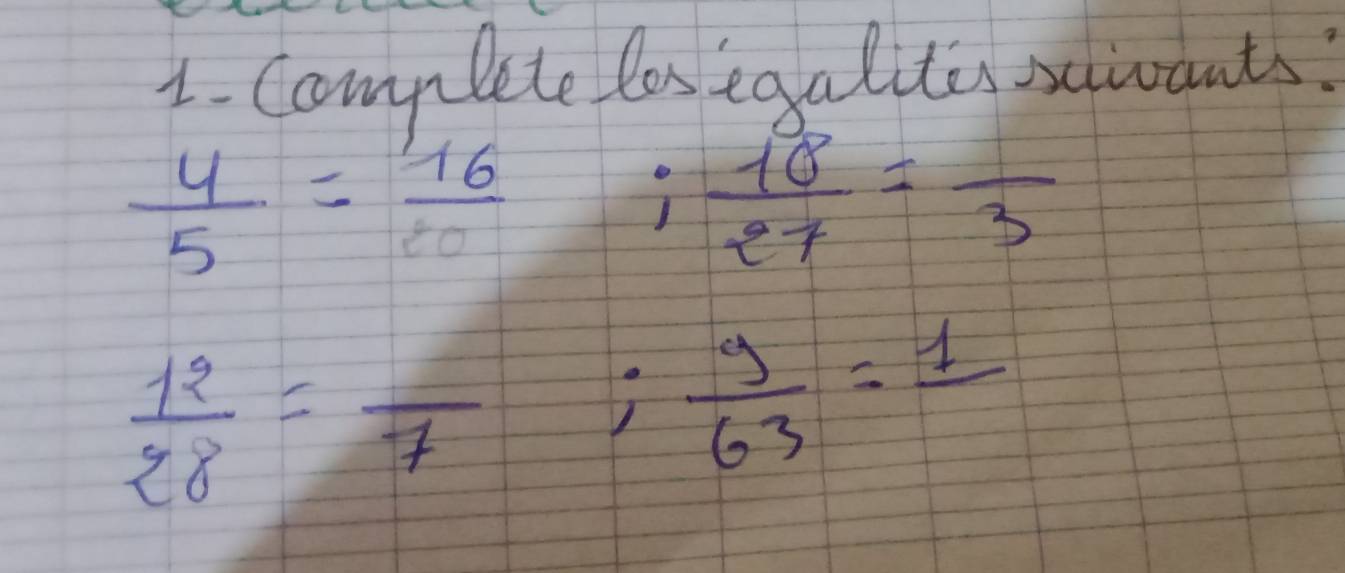 1- Complète les égalités suivants:
4/5 = 16/20 ; 18/27 = /3
12/28 = /7 ; 9/63 = 1/